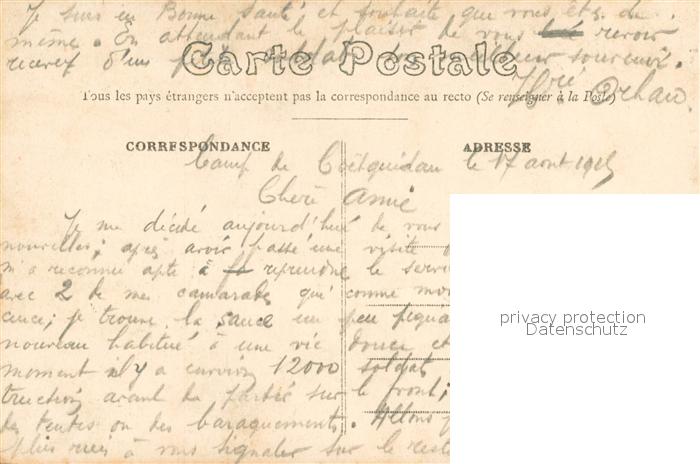 Je suis en Bonne santé et souhaite que vous êtes de
même. En attendant le plaisir de vous revoir
recevez d'un petit soldat son meilleur souvenir.
Carte Postale
Tous les pays étrangers n'acceptent pas la correspondance au recto (Se renseigner à la Poste)
CORRESPONDANCE
ADRESSE
Camp de Coëtquidan le 17 aout 1915
Cheré Amie
Je me décide aujourd'hui de vous
nouvelles; après avoir passé une visite
m'a reconnu apte à reprendre le servi
avec 2 de mes camarades qui comme moi
cence; je trouve la sauce un peu piqua
nouveau habitué à une vie douce et
moment il y a environ 12000 soldat
truction avant de partir sur le front;
des tentes ou des baraquements. Allons
plus rien à vous signaler sur le reste
privacy protection
Datenschutz